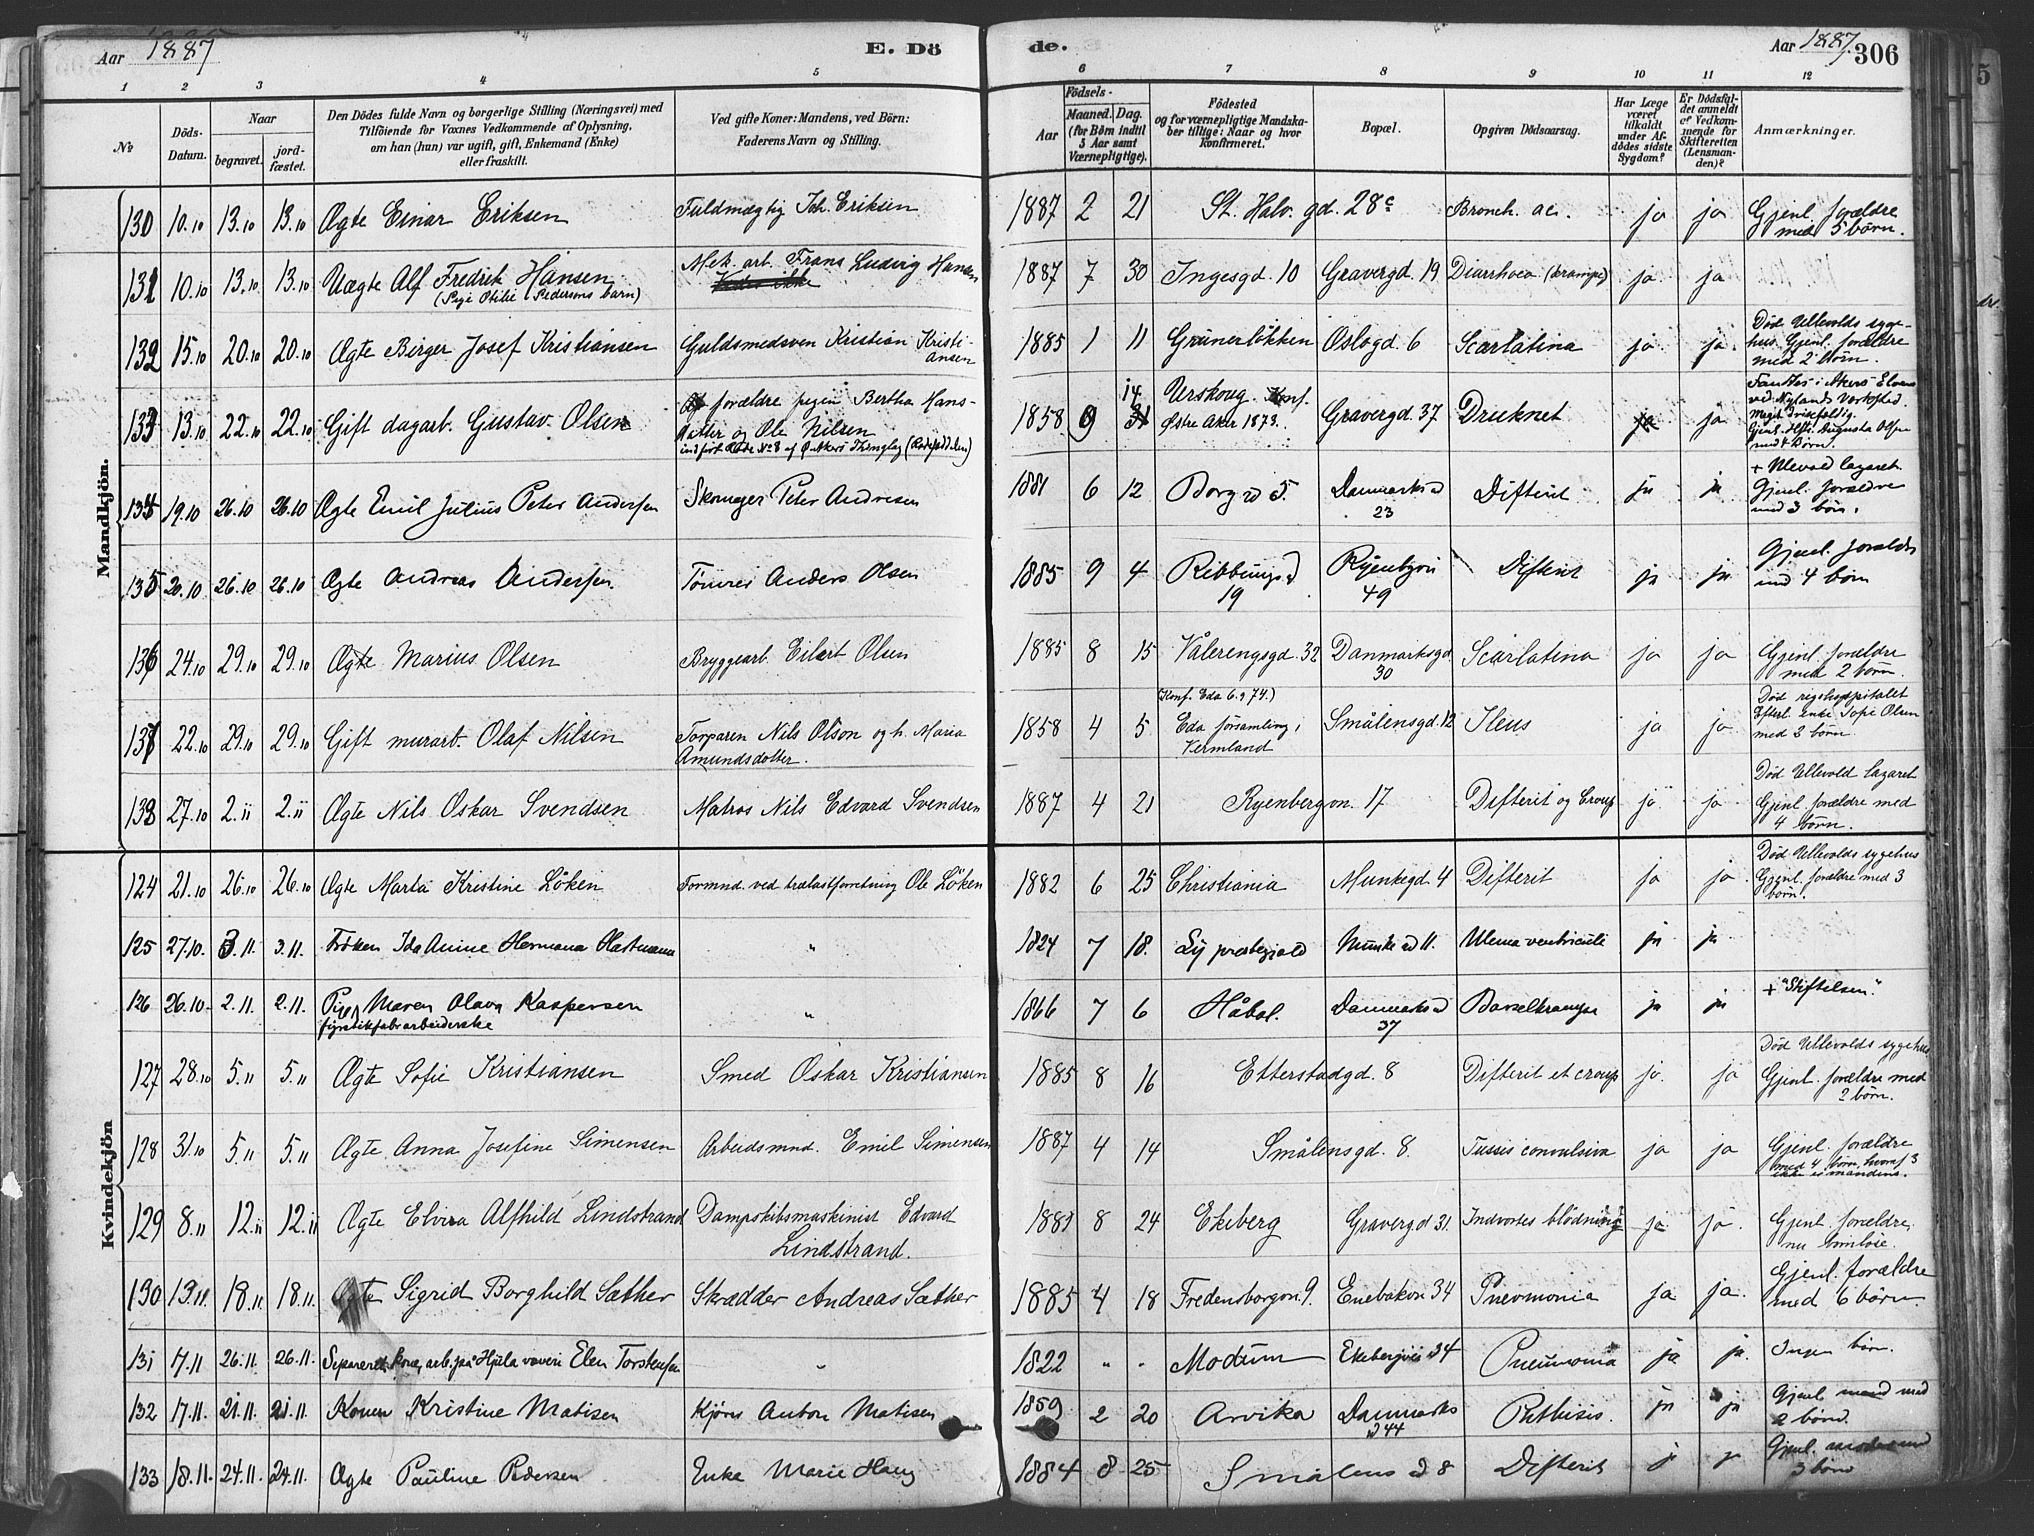 Aar 1887. E. Dö
de. Aar 1887. 306
1 2 3 4 5 6 7 8 9 10 11 12
№ Döds-Datum. Naar begravet. jordfæstet. Den Dödes fulde Navn og borgerlige Stilling (Næringsvei) med Tilföiende for Voxnes Vedkommende af Oplysning, om han (hun) var ugift, gift, Enkemand (Enke) eller fraskilt. Ved gifte Koner: Mandens, ved Börn: Faderens Navn og Stilling. Födsels- Aar Maaned. Dag. (for Børn indtil 5 Aar samt Værnepligtige). Födested og for værnepligtige Mandskaber tillige: Naar og hvor konfirmeret. Bopæl. Opgiven Dödsaarsag. Har Læge været tilkaldt under Afdödes sidste Sygdom? Er Dödsfaldet anmeldt af Vedkommende for Skifteretten (Lensmanden)? Anmærkninger.
Mandkjön.
130 10.10 13.10 13.10 Ægte Einar Eriksen Fuldmægtig Joh. Eriksen 1887 2 21 St. Halv. gd. 28c Bronch. ac. ja ja Gjenl. forældre med 5 børn.
131 10.10 13.10 13.10 Uægte Alf Fredrik Hansen Mek. arb. Frans Ludvig Hansen 1887 7 30 Ingesgd 10 Gravergd. 19 Diarrhoea (krampe) ja ja
132 15.10 20.10 20.10 Ægte Birger Josef Kristiansen Guldsmedsven Kristian Kristiansen 1885 1 11 Grünerløkken Oslogd 6 Scarlatina ja ja Død Ullevolds sygehus. Gjenl. forældre med 2 børn.
133 13.10 22.10 22.10 Gift dagarb. Gustav Olsen forældre pigen Bertha Hansdatter og Ole Nilsen 1858 9 14 Urskoug. Konf. Østre Aker 1873. Gravergd. 37 Druknet ja Fandtes i Akers Elven ved Nylands Værksted. Gjenl. Hustr. Augusta Olsen med 4 Børn.
134 19.10 26.10 26.10 Ægte Emil Julius Peter Andersen Skomager Peter Andresen 1881 6 12 Borggd 5. Danmarksgd 23 Difterit ja ja + Ulevold lazaret. Gjenl. forældre med 3 børn.
135 20.10 26.10 26.10 Ægte Andreas Andersen Tømrer Anders Olsen 1885 9 4 Ribbungsgd 19 Ryenbgvn 49 Difterit ja ja Gjenl. forældre med 4 børn
136 24.10 29.10 29.10 Ægte Marius Olsen Bryggearb. Eilert Olsen 1885 8 15 Vålerengsgd. 32 Danmarksgd 30 Scarlatina ja ja Gjenl. forældre med 2 børn.
137 22.10 29.10 29.10 Gift murarb. Olaf Nilsen Torparen Nils Olson og h. Maria Amundsdotter. 1858 4 5 (Konf. Eda 6.9 74.) Eda församling i Vermland Smålensgd. 12 Ileus ja ja Død rigshospitalet Efterl. enke Sofie Olsen med 3 børn.
138 27.10 2.11 2.11 Ægte Nils Oskar Svendsen Matros Nils Edvard Svendsen 1887 4 21 Ryenbergvn. 17 Difterit og Croup ja ja Død Ullevold lazaret Gjenl. forældre med 4 børn.
Kvindekjön
124 21.10 26.10 26.10 Ægte Marta Kristine Løken Formnd. ved trælastforretning Ole Løken 1882 6 25 Christiania Munkegd 4 Difterit ja ja Død Ullevolds sygehus Gjenl. forældre med 3 børn.
125 27.10. 3.11. 3.11. Frøken Ida Anine Hermana Hartmann " 1824 7 18. Ly præstegjæld Munkegd 11. Ulcus ventriculi ja ja
126 26.10. 2.11. 2.11. Pige Maren Olava Kaspersen fyrstikfabrarbeiderske " 1866 7 6 Håbøl. Danmarksgd 37 Barselkrampe ja ja + "Stiftelsen."
127 28.10 5.11 5.11 Ægte Sofie Kristiansen Smed Oskar Kristiansen 1885 8 16 Etterstadgd. 8 Difterit et croup ja. ja Død Ullevolds sygehus Gjenl. forældre med 2 børn.
128 31.10 5.11 5.11 Ægte Anna Josefine Simensen Arbeidsmnd. Emil Simensen 1887 4 14 Smålensgd. 8. Tussis convulsiva ja ja Gjenl. forældre med 4 børn, hvoraf 3 ikke er mandens.
129 8.11 12.11 12.11 Ægte Elvira Alfhild Lindstrand Dampskibsmaskinist Edvard Lindstrand. 1885 8 24 Ekeberg Gravergd 31. Indvortes blødning ja ja. Gjenl. forældre, nu børnløse.
130 13.11. 18.11. 18.11. Ægte Sigrid Borghild Sæther Skrædder Andreas Sæther 1885 4 18 Fredensborgvn. 9. Enebakvn 34 Pnevmonia ja ja. Gjenl. forældre med 6 børn.
131 17.11 26.11. 26.11. Separeret kone, arb. på Hjula væveri Elen Torstensen " 1822 " " Modum Ekebergvei 34 Pneumonia ja ja. Ingen børn.
132 17.11. 21.11. 21.11. Konen Kristine Matisen Kjøres Anton Matisen 1859 2 20 Arvika Danmarksgd 44 Phthisis. ja ja Gjenl. mand med 2 børn.
133 18.11. 24.11. 24.11. Ægte Pauline Pedersen Enke Marie Haug 1884 8 25 Smålensgd 8 Difterit Gjenl. moder med 3 børn